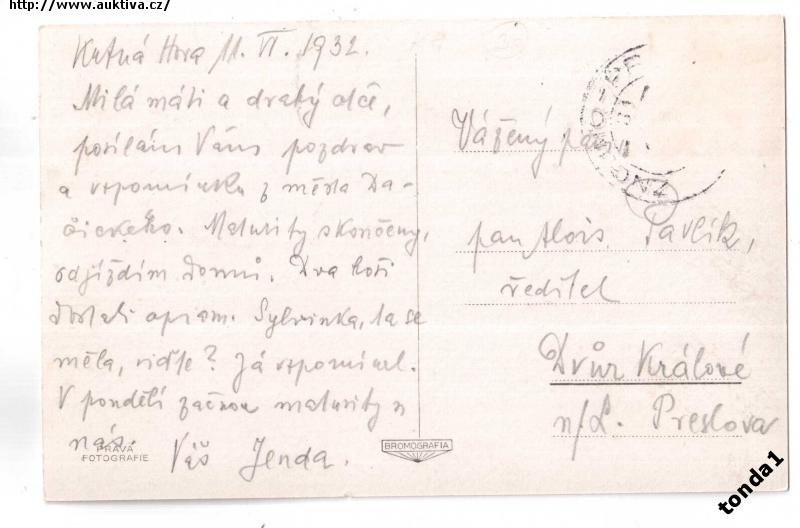 http://www.auktiva.cz/
Kutná Hora 11. VI. 1932.
Milá máti a drahý otče,
posílám Vám pozdrav
a vzpomínku z města Da-
čického. Maturity skončeny,
odjíždím domů. Dva hoši
dostali
Sylvinka, ta se
měla, viďte? Já vzpomínal.
V pondělí začnou maturity u
nás.
Váš Jenda.
PRAVÁ
FOTOGRAFIE
BROMOGRAFIA
Vážený pan
pan Alois Pavlík,
ředitel
Dvůr Králové
n/L. Preslova
tonda1